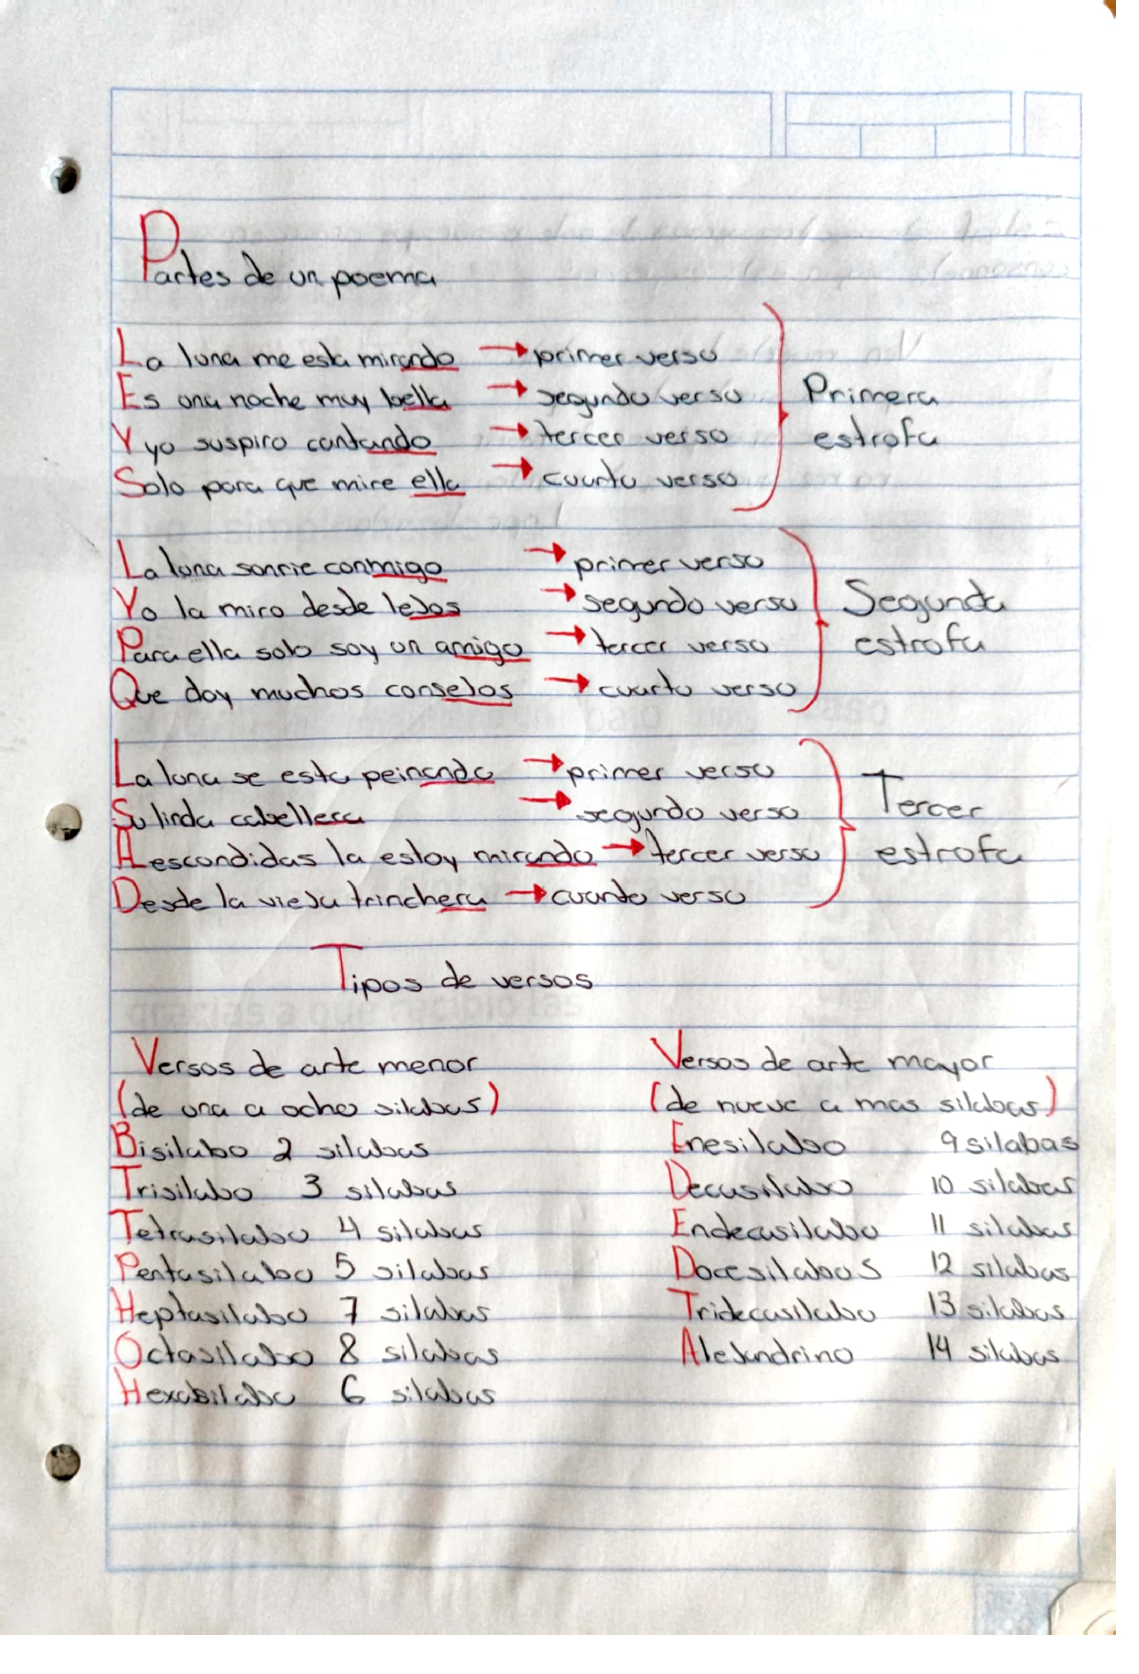 Partes de un poema
La luna me esta mirando → primer verso
Es una noche muy bella → segundo verso
Y yo suspiro cantando → tercer verso
Solo para que mire ella → cuarto verso
Primera
estrofa
La luna sonrie conmigo → primer verso
Yo la miro desde lejos → segundo verso
Para ella solo soy un amigo → tercer verso
Que doy muchos consejos → cuarto verso
Segunda
estrofa
La luna se esta peinando → primer verso
Su linda cabellera → segundo verso
A escondidas la estoy mirando → tercer verso
Desde la vieja trinchera → cuarto verso
Tercer
estrofa
Tipos de versos
Versos de arte menor
(de una a ocho silabas)
Bisilabo 2 silabas
Trisilabo 3 silabas
Tetrasilabo 4 silabas
Pentasilabo 5 silabas
Heptasilabo 7 silabas
Octasilabo 8 silabas
Hexasilabo 6 silabas
Versos de arte mayor
(de nueve a mas silabas)
Enesilabo 9 silabas
Decasilabo 10 silabas
Endecasilabo 11 silabas
Docesilabos 12 silabas
Tridecasilabo 13 silabas
Alejandrino 14 silabas